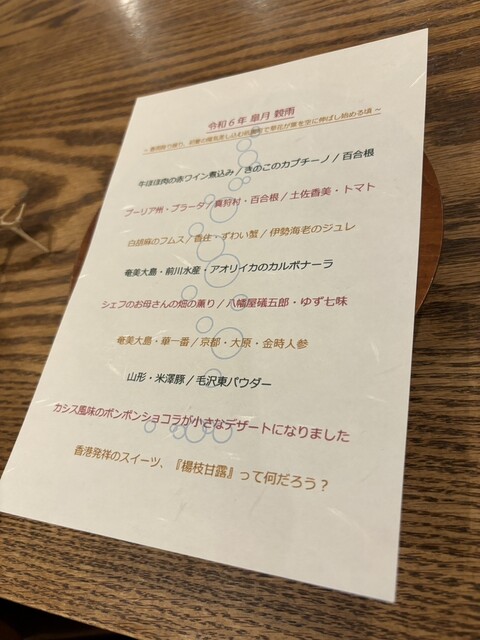 令和6年 皐月 穀雨
で草花が葉を空に伸ばし始める頃 ~
牛ほほ肉の赤ワイン煮込み / きのこのカプチーノ / 百合根
プーリア州・ブラータ / 真狩村・百合根 / 土佐香美・トマト
白胡麻のフムス / 香住・ずわい蟹 / 伊勢海老のジュレ
奄美大島・前川水産・アオリイカのカルボナーラ
シェフのお母さんの畑の薫り / 八幡屋礒五郎・ゆず七味
奄美大島・華一番 / 京都・大原・金時人参
山形・米澤豚 / 毛沢東パウダー
カシス風味のボンボンショコラが小さなデザートになりました
香港発祥のスイーツ、『楊枝甘露』って何だろう？